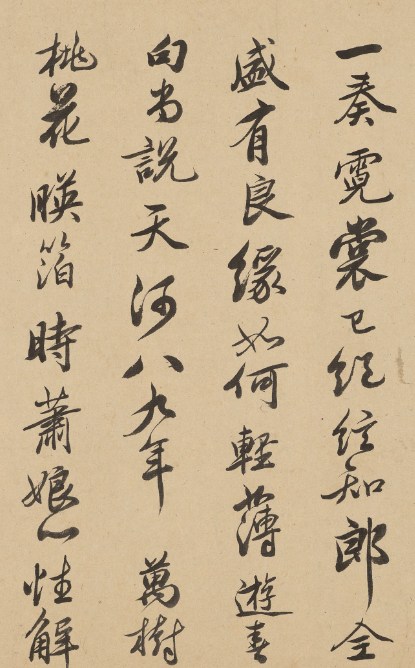 一奏霓裳已經紜知郎全
盛有良緣如何輕薄遊春
句尚說天河八九年 萬樹
桃花暎箔時蕭娘心性解